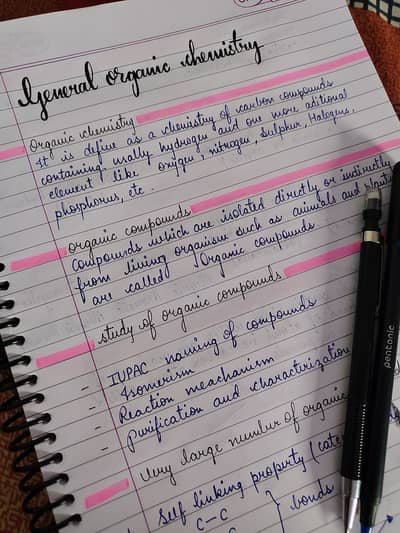 General organic chemistry
Organic chemistry
It is define as a chemistry of carbon compounds
containing usally hydrogen and one more aditional
element like oxygen, nitrogen, Sulphur, Halogens,
phosphorus, etc.
organic compounds
Compounds which are isolated directly or indirectly
from living organism such as animals and plants
are called Organic compounds
study of organic compounds
- IUPAC naming of compounds
- Isomerism
- Reaction meachanism
- Purification and characterization
Very large number of organic
Self linking property (cate
C-C
bonds
pentonic